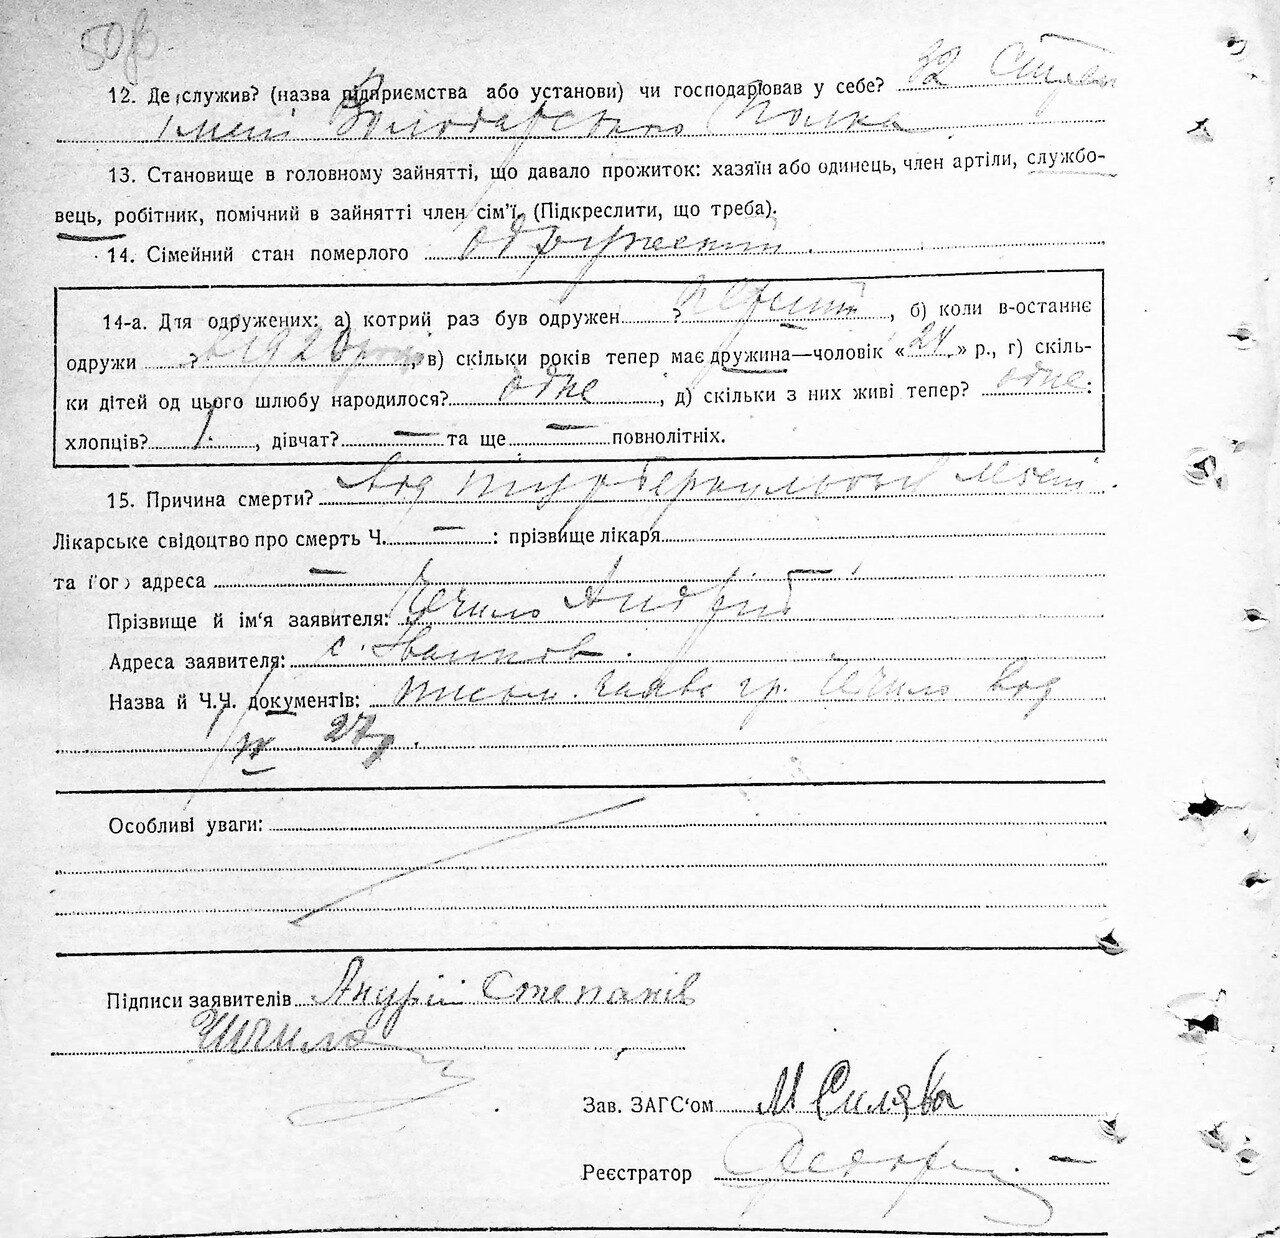 12. Де служив? (назва підприємства або установи) чи господарював у себе? 32
імені Володарського Полка
13. Становище в головному зайнятті, що давало прожиток: хазяїн або одинець, член артіли, службо-
вець, робітник, помічний в зайнятті член сім'ї. (Підкреслити, що треба).
14. Сімейний стан померлого одружений
14-а. Для одружених: а) котрий раз був одружен ? Перший, б) коли в-останнє
одружи ? в 192 році, в) скільки років тепер має дружина—чоловік «24» р., г) скіль-
ки дітей од цього шлюбу народилося? одне, д) скільки з них живі тепер? одне:
хлопців? 1, дівчат? — та ще — повнолітніх.
15. Причина смерти? від туберкульози
Лікарське свідоцтво про смерть Ч. — : прізвище лікаря
та його адреса — —
Прізвище й ім'я заявителя: Андрій
Адреса заявителя: с.
Назва й Ч.Ч. документів: письм. заява гр. від
27р.
Особливі уваги:
Підписи заявителів Андрій Степанів
Зав. ЗАГС'ом М
Реєстратор